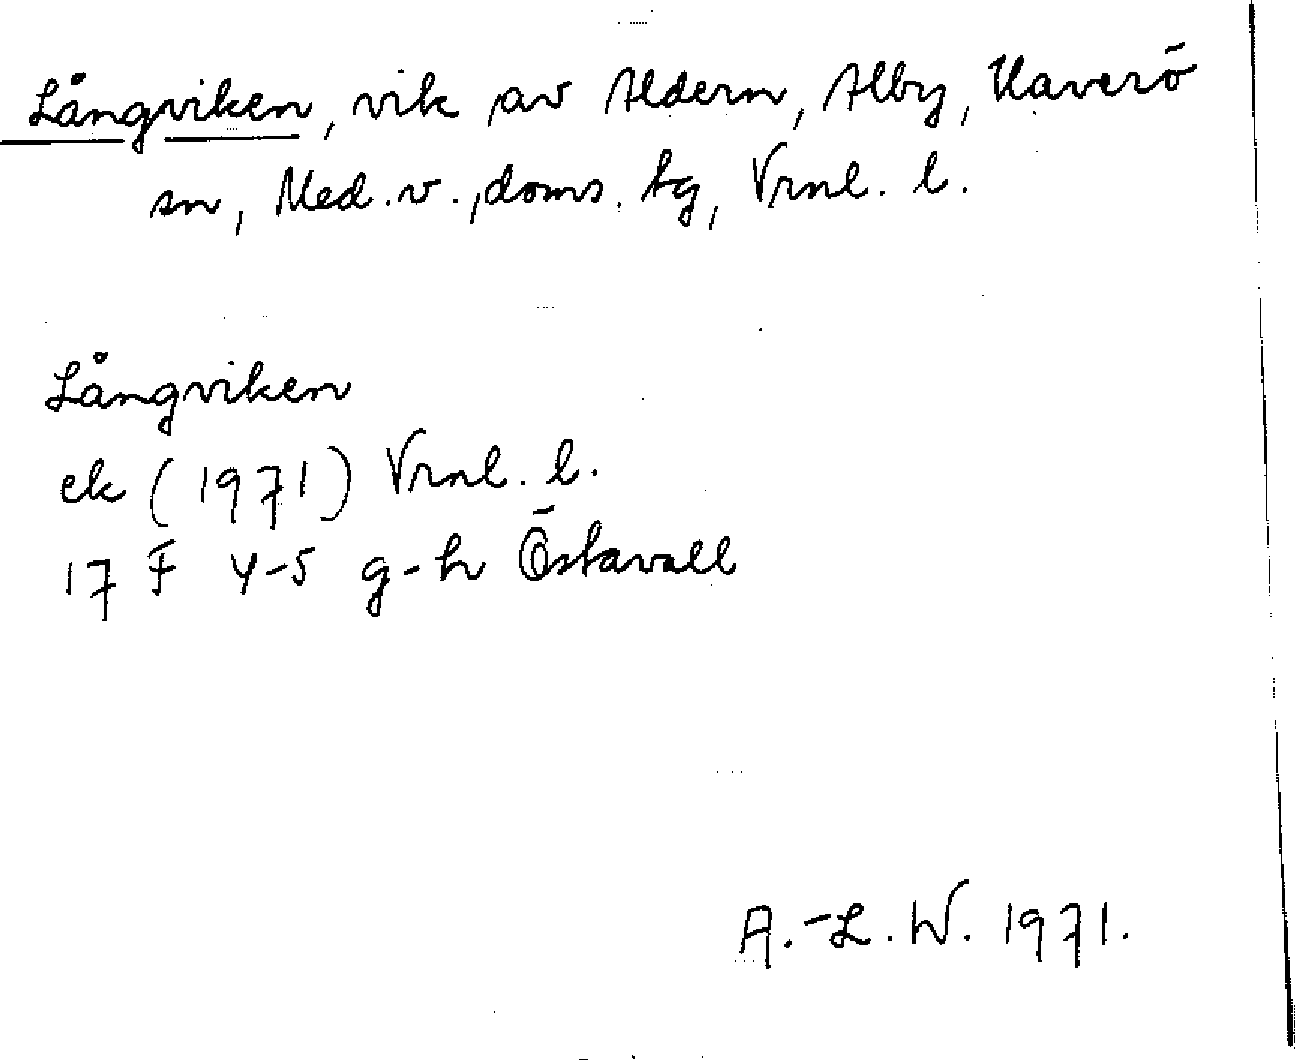 Långviken, vik av Aldern, Alby, Haverö
sn, Med. v., doms. tg, Vrnl. l.
Långviken
ek (1971) Vrnl. l.
17 F 4-5 g-h Östavall
A.-L. W. 1971.